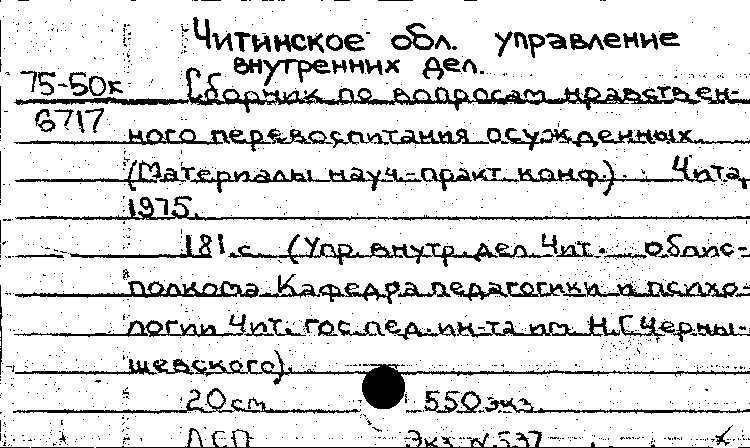 Читинское обл. управление
внутренних дел.
75-50к Сборник по вопросам нравствен-
6717 ного перевоспитания осужденных.
(Материалы науч.-практ. конф.). Чита,
1975.
181 с. (Упр. внутр. дел Чит. облис-
полкома Кафедра педагогики и психо-
логии Чит. гос. пед. ин-та им. Н.Г. Черны-
шевского).
20 см. 550 экз.
ДСП Экз. № 537